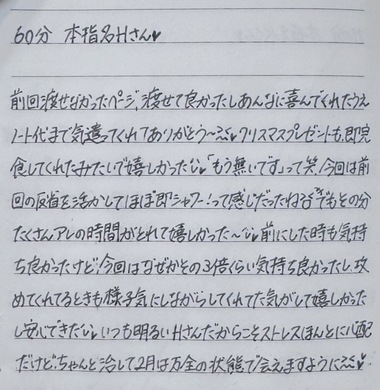 60分 本指名Hさん♥
前回渡せなかったページ、渡せて良かったしあんなに喜んでくれたうえ
ノート代まで気遣ってくれてありがとう〜 クリスマスプレゼントも、即完
食してくれたみたいで嬉しかった♥「もう無いです」って笑 今回は前
回の反省を活かしてほぼ即シャワー!って感じだったね でもその分
たくさんアレの時間がとれて嬉しかった〜 前にした時も気持
ち良かったけど、今回はなぜかその3倍くらい気持ち良かったし、攻
めてくれてるときも様子気にしながらしてくれてた気がして嬉しかった
し安心できた いつも明るいHさんだからこそストレスほんとに心配
だけど、ちゃんと治して2月は万全の状態で会えますように